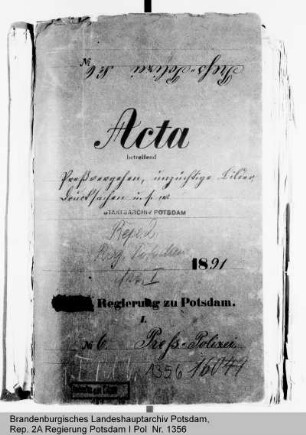 Press-Polizei № 6
Acta
betreffend
Preßvergehen, unzüchtige Bilder,
Drucksachen u. s. w.
STAATSARCHIV POTSDAM
Rep. 2
Reg. Potsdam
1891
Regierung zu Potsdam.
I.
№ 6 Press-Polizei
1356 16044
Brandenburgisches Landeshauptarchiv Potsdam,
Rep. 2A Regierung Potsdam I Pol Nr. 1356